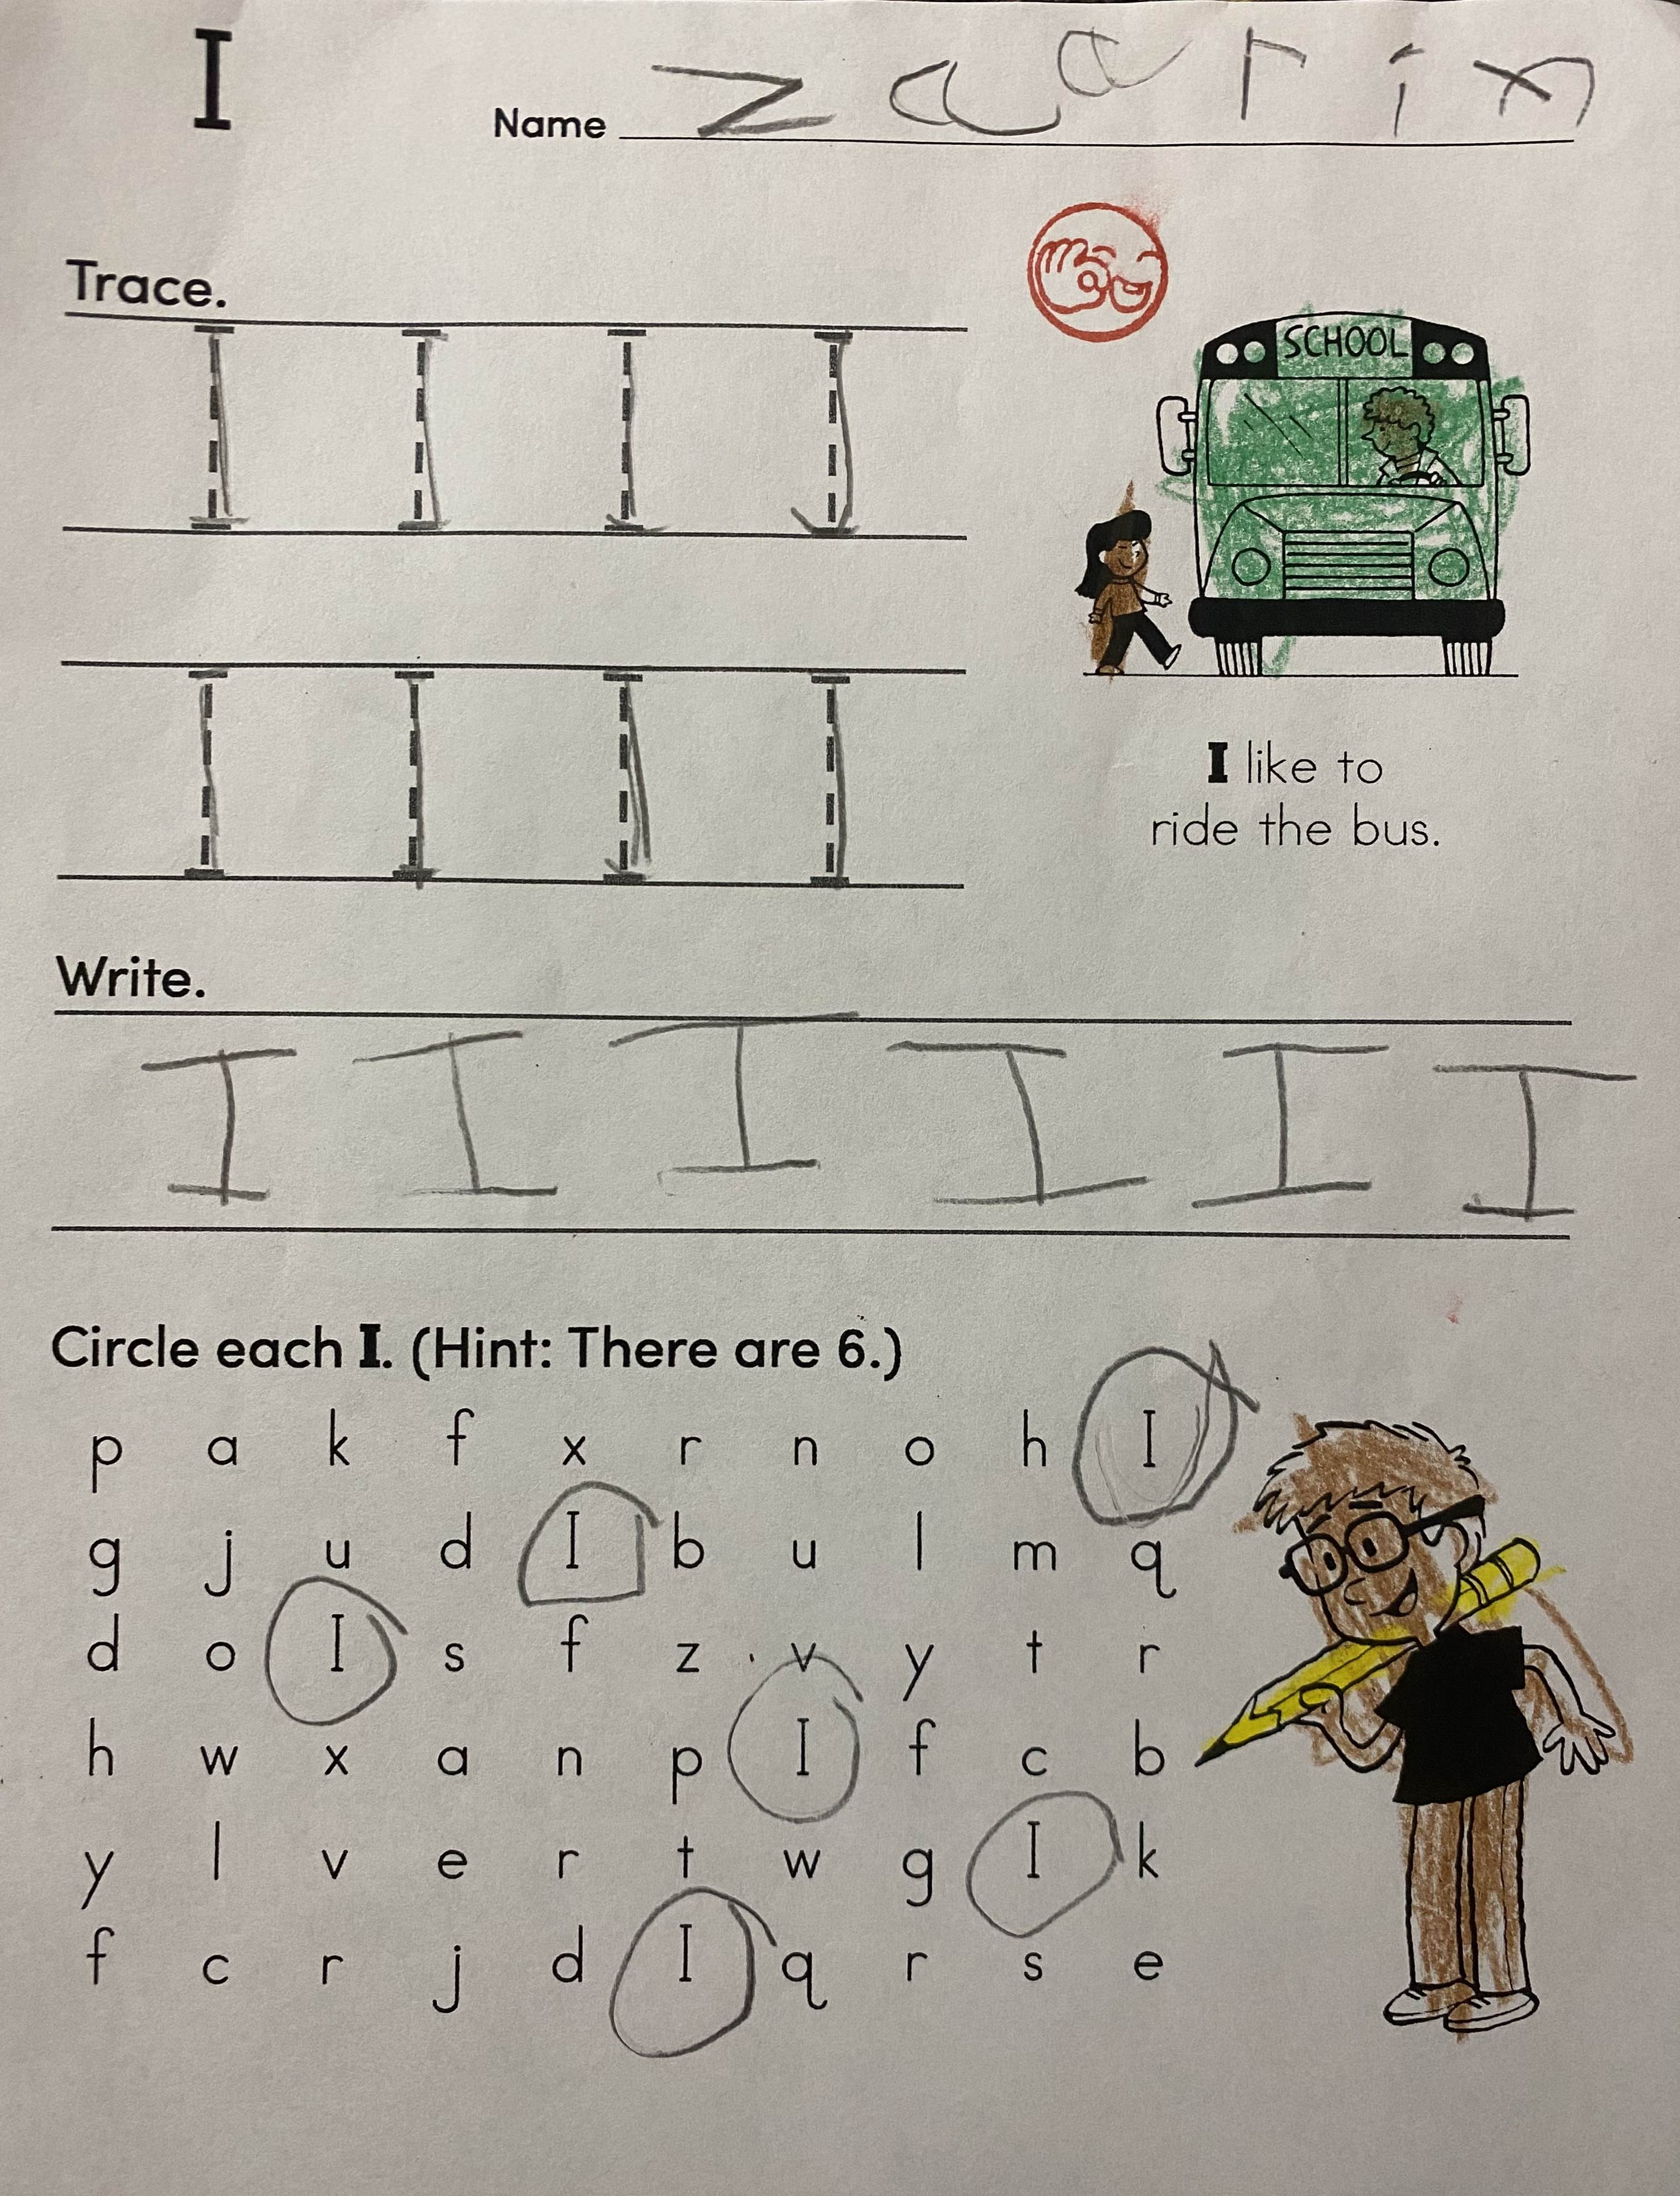 I
Name zaarin
Trace.
I I I I
SCHOOL
I I I I
I like to
ride the bus.
Write.
I I I I I I
Circle each I. (Hint: There are 6.)
p a k f x r n o h I
g j u d I b u l m q
d o I s f z v y t r
h w x a n p I f c b
y l v e r t w g I k
f c r j d I q r s e